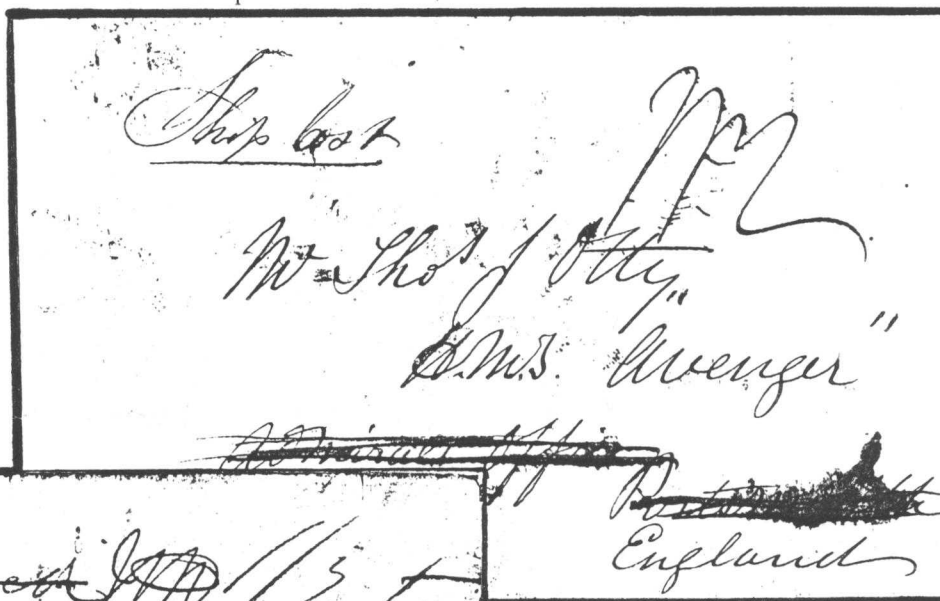 Ship lost
Mr Thos J Otty
H.M.S. "Avenger"
Admirals Office
Portsmouth
England